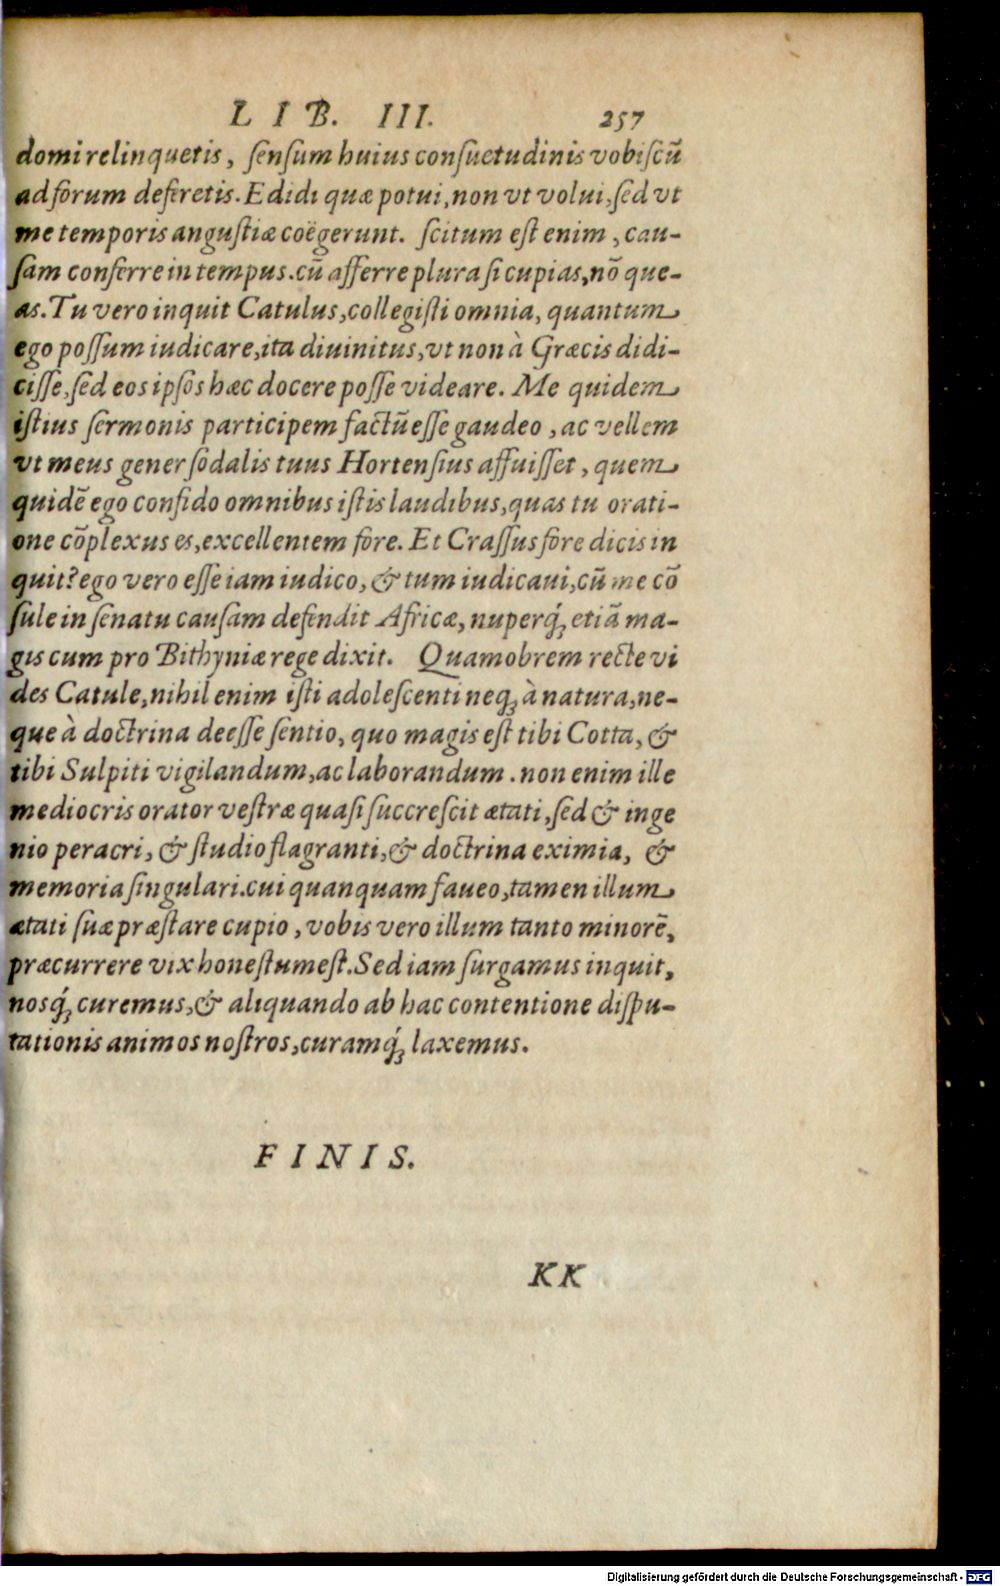 LIB. III. 257
domi relinquetis, ſenſum huius conſuetudinis vobiſcū
ad forum deferetis. Edidi quæ potui, non vt volui, ſed vt
me temporis anguſtiæ coëgerunt. ſcitum eſt enim, cau-
ſam conferre in tempus. cū afferre plura ſi cupias, nō que-
as. Tu vero inquit Catulus, collegiſti omnia, quantum
ego poſſum iudicare, ita diuinitus, vt non à Græcis didi-
ciſſe, ſed eos ipſos hæc docere poſſe videare. Me quidem
iſtius ſermonis participem factū eſſe gaudeo, ac vellem
vt meus gener ſodalis tuus Hortenſius affuiſſet, quem
quidē ego confido omnibus iſtis laudibus, quas tu orati-
one cōplexus es, excellentem fore. Et Craſſus fore dicis in
quit? ego vero eſſe iam iudico, & tum iudicaui, cū me cō
ſule in ſenatu cauſam defendit Africæ, nuperq́; etiā ma-
gis cum pro Bithyniæ rege dixit. Quamobrem recte vi
des Catule, nihil enim iſti adoleſcenti neq; à natura, ne-
que à doctrina deeſſe ſentio, quo magis eſt tibi Cotta, &
tibi Sulpiti vigilandum, ac laborandum. non enim ille
mediocris orator veſtræ quaſi ſuccreſcit ætati, ſed & inge
nio peracri, & ſtudio flagranti, & doctrina eximia, &
memoria ſingulari. cui quanquam faueo, tamen illum
ætati ſuæ præſtare cupio, vobis vero illum tanto minorē,
præcurrere vix honeſtum eſt. Sed iam ſurgamus inquit,
nosq́; curemus, & aliquando ab hac contentione diſpu-
tationis animos noſtros, curamq́; laxemus.
FINIS.
KK
Digitalisierung gefördert durch die Deutsche Forschungsgemeinschaft - DFG